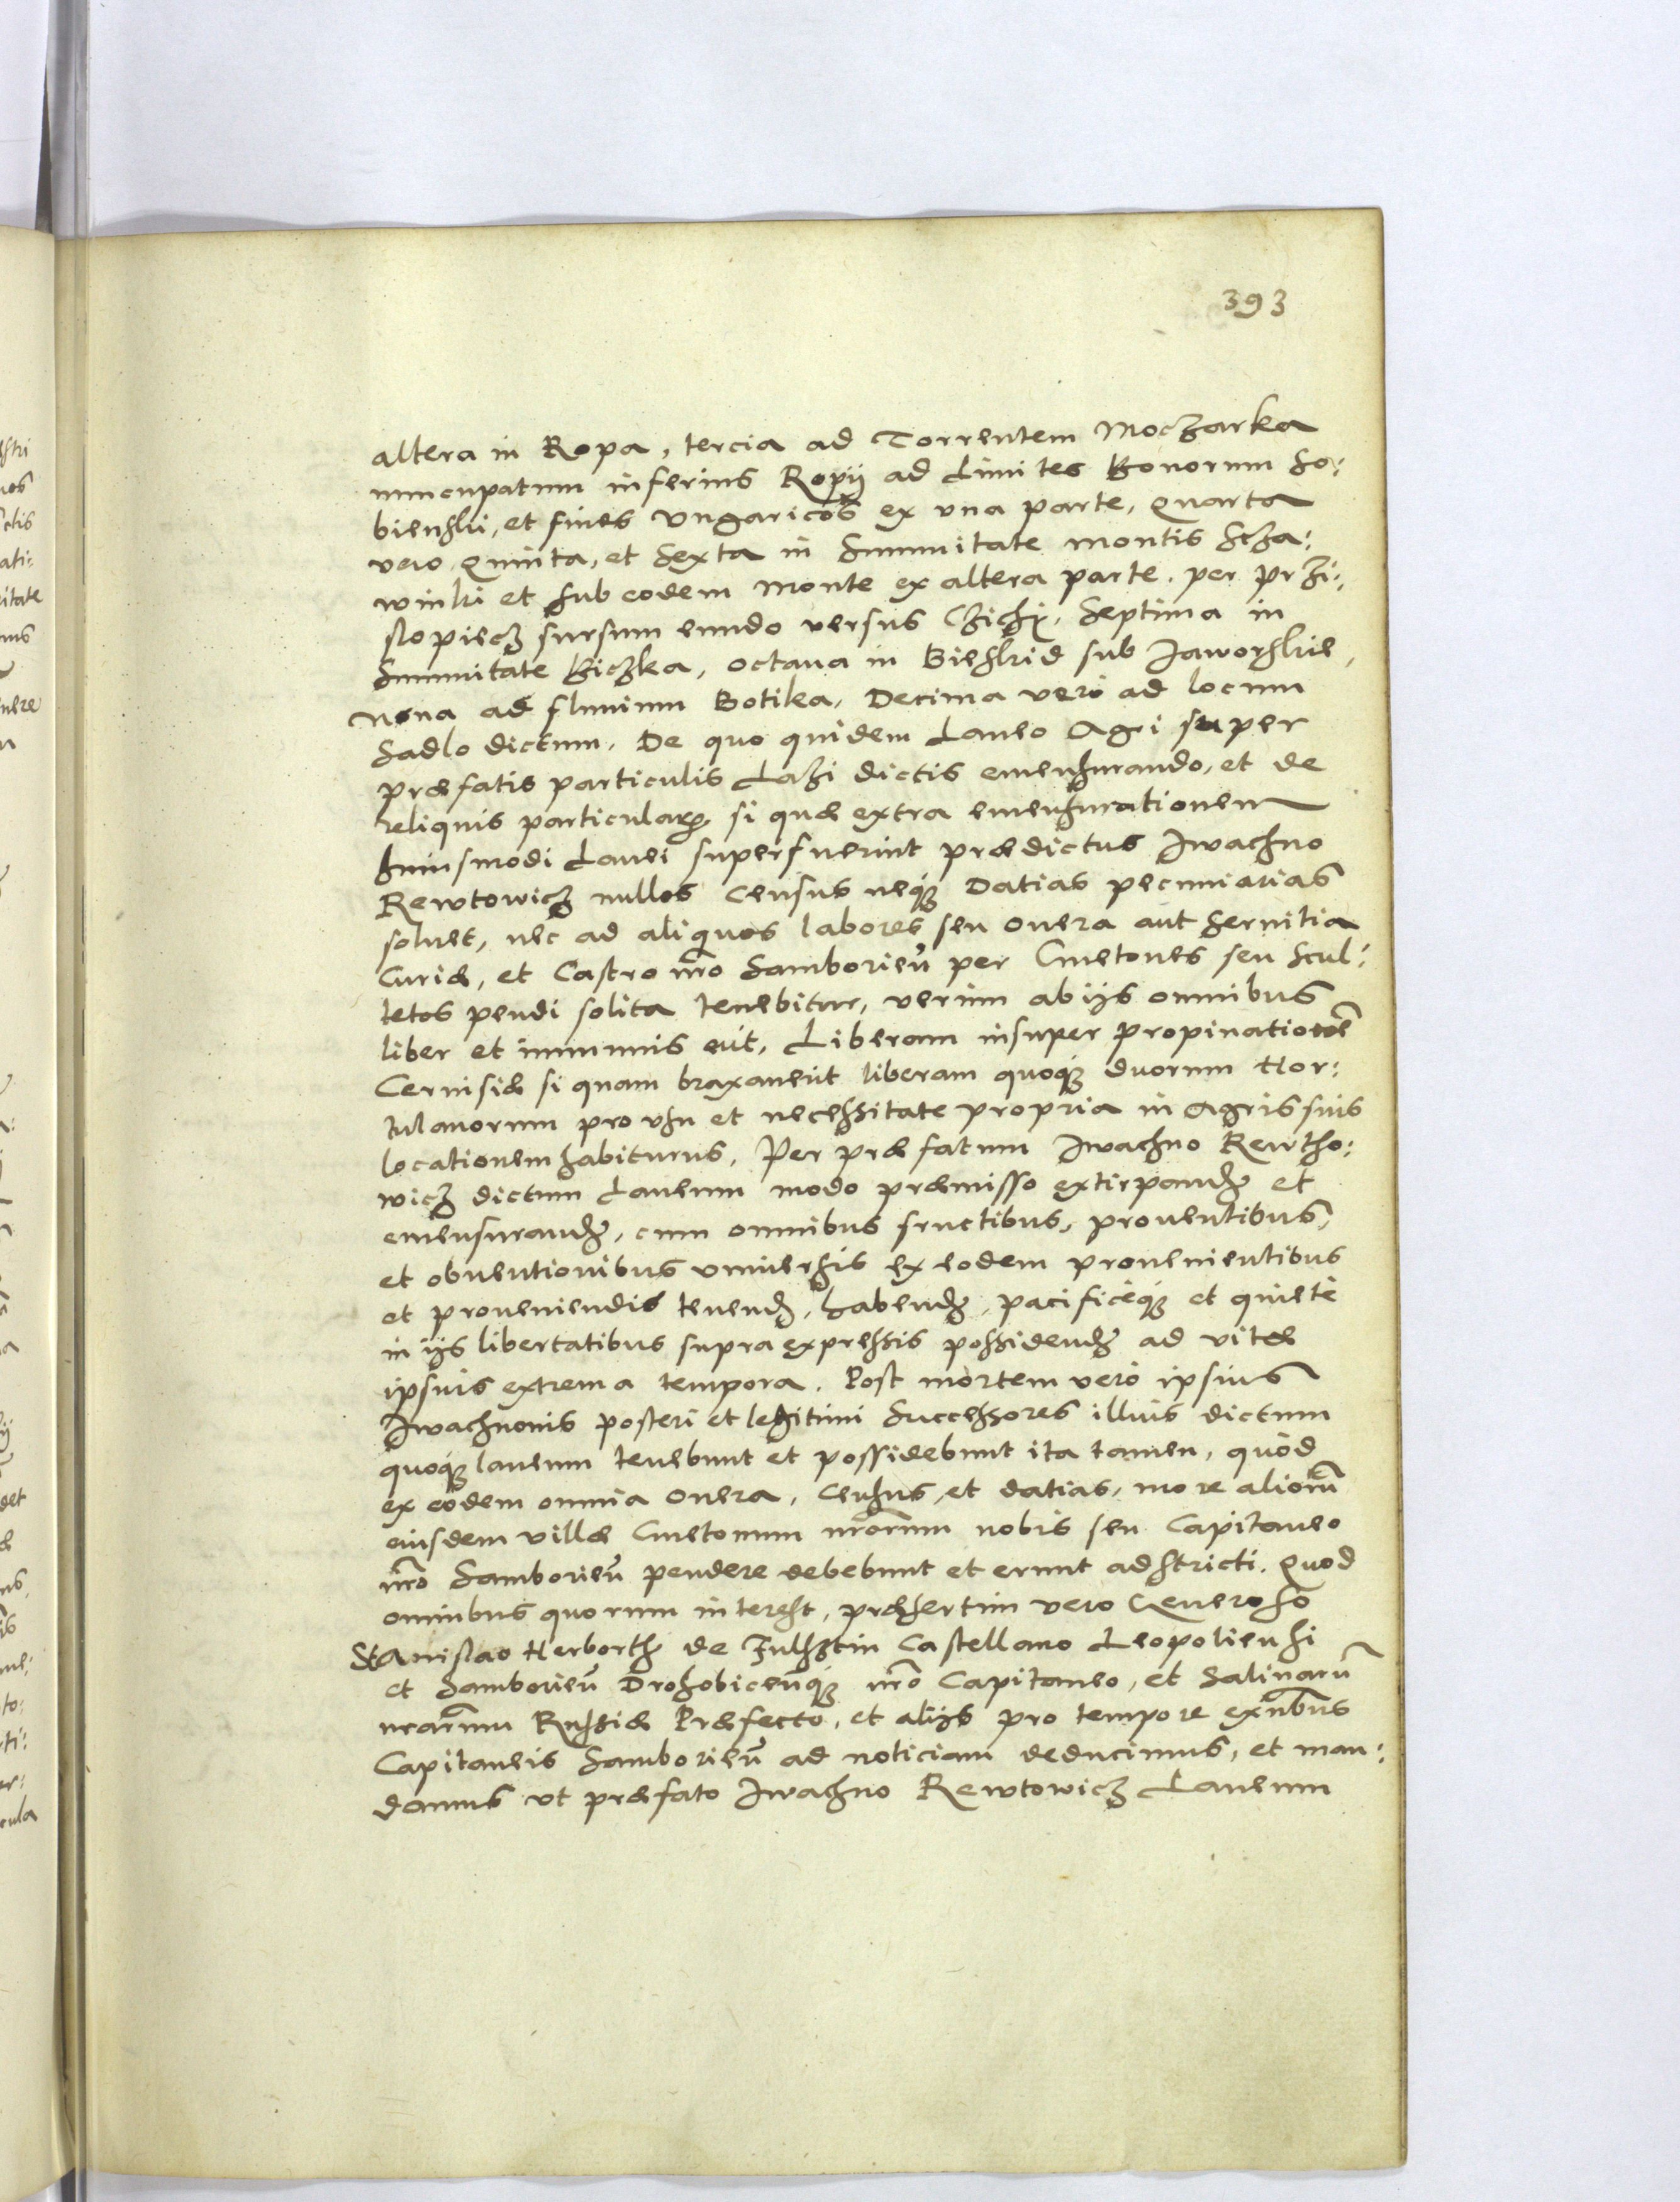 393
altera in Ropa, tercia ad Torrentem Moczarka
nuncupatum inferius Ropÿ ad Limites Bonorum So:
bienski, et fines Vngaricos ex vna parte, Quarta
vero Quinta, et Sexta in Summitate montis Scza:
winki et sub eodem Monte ex altera parte. per przi:
slopiecz sursum eundo versus Czichi, Septima in
Summitate Biczka, octaua in Bieskid sub Jaworskie,
Nona ad fluuium Botilka, Decima verò ad locum
Sadlo dictum. De quo quidem Laneo Agri super
præfatis particulis Lazi dictis emensurando, et de
reliquis particularum, si quæ extra emensurationem
huiusmodi Lanei superfuerint prædictus Iwachno
Rewtowicz nullos Census neqꝫ Datias pecuniarias
soluet, nec ad aliquos labores seu onera aut seruitia
Curiæ, et Castro nro Samborieñ per Cmetones seu Scul:
tetos pendi solita tenebitur, verum ab ijs omnibus
liber et immunis erit, Liberam insuper propinationē
Ceruisiæ si quam braxauerit liberam quoqꝫ duorum Hor:
tulanorum pro vsu et necessitate propria in Agris suis
locationem habiturus, Per præfatum Iwachno Rewtho:
wicz dictum Laneum modo præmisso extirpand et
emensurand, cum omnibus fructibus, prouentibus,
et obuentionibus vniuersis ex eodem prouenientibus
et proueniendis tenend, habend, pacificèqꝫ et quietè
in ijs libertatibus supra expressis possidend ad vitæ
ipsius extrema tempora. Post mortem verò ipsius
Iwachnonis posteri et legitimi Successores illius dictum
quoqꝫ laneum tenebunt et possidebunt ita tamen, quòd
ex eodem omnia onera, Census, et datias, more aliorū
eiusdem villæ Cmetonum nrorum nobis seu Capitaneo
nro Samborieñ pendere debebunt et erunt adstricti. Quod
omnibus quorum interest, præsertim vero Generoso
Stanislao Herborth de Fulsztin Castellano Leopoliensi
et Samborieñ Drohobicenqꝫ nro Capitaneo, et Salinarū
nrarum Russiæ Præfecto, et alijs pro tempore exñbus
Capitaneis Samborieñ ad noticiam deducimus, et man:
damus vt præfato Iwachno Rewtowicz Laneum